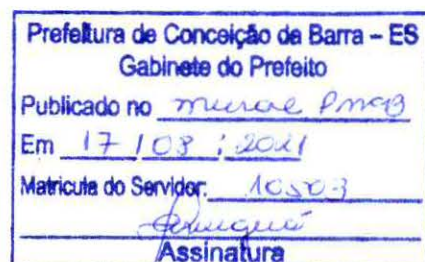 Prefeitura de Conceição da Barra – ES
Gabinete do Prefeito
Publicado no mural PMCB
Em 17 / 03 / 2021
Matricula do Servidor: 10503
Assinatura